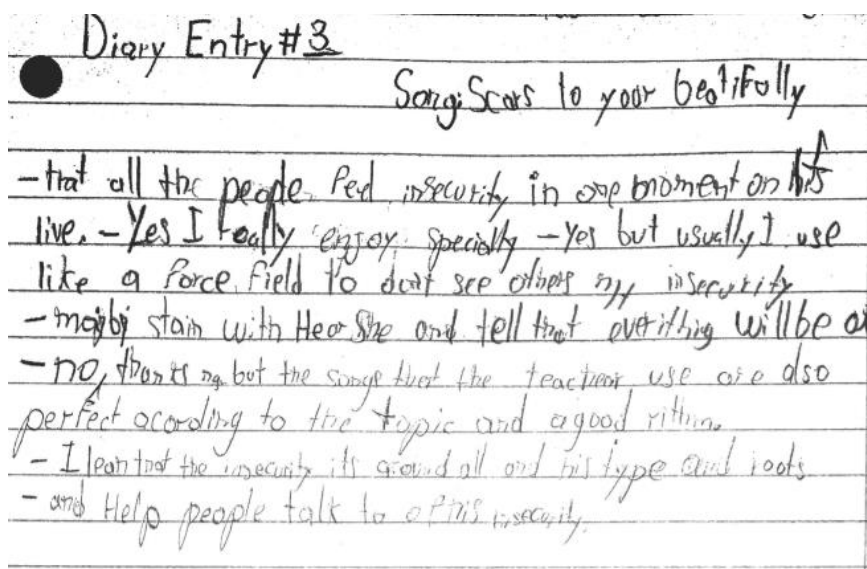 Diary Entry #3
Song: Scars to your beatifully
- that all the people feel insecurity in one moment on his
live. - Yes I really enjoy specially - Yes but usually I use
like a force field to don't see others my insecurity
- maybi stain with Her She and tell that everithing will be
- no, thanks but the songs that the teacher use are also
perfect acording to the topic and a good rithm.
- I lean that the insecurity its around all and his type and roots
- and Help people talk to his insecurity.